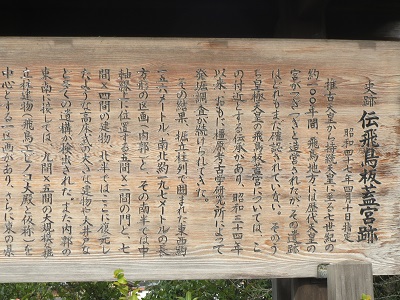 史跡 伝飛鳥板蓋宮跡
昭和四十七年四月十日指定
推古天皇から持統天皇に至る七世紀の
約一〇〇年間、飛鳥地方には歴代天皇の
宮がつぎつぎと造営されたが、その遺跡
はいずれもまだ確認されていない。そのう
ち皇極天皇の飛鳥板蓋宮については、こ
の付近とする伝承があり、昭和三十四年
以来、おもに橿原考古学研究所によって
発掘調査が続けられてきた。
その結果、掘立柱列で囲まれた東西約
一五六メートル・南北約一九七メートルの長
方形の区画(内郭)と、その南半では中
軸線上に位置する五間×二間の門と、七
間×四間の建物、北半ではここに復元し
たような高床式の大きな建物と大井戸な
ど多くの遺構が検出された。また内郭の
東南に接しては、九間×五間の大規模な掘
立柱建物(飛鳥エビノコ大殿と仮称)を
中心とする一区画があり、さらに東の県